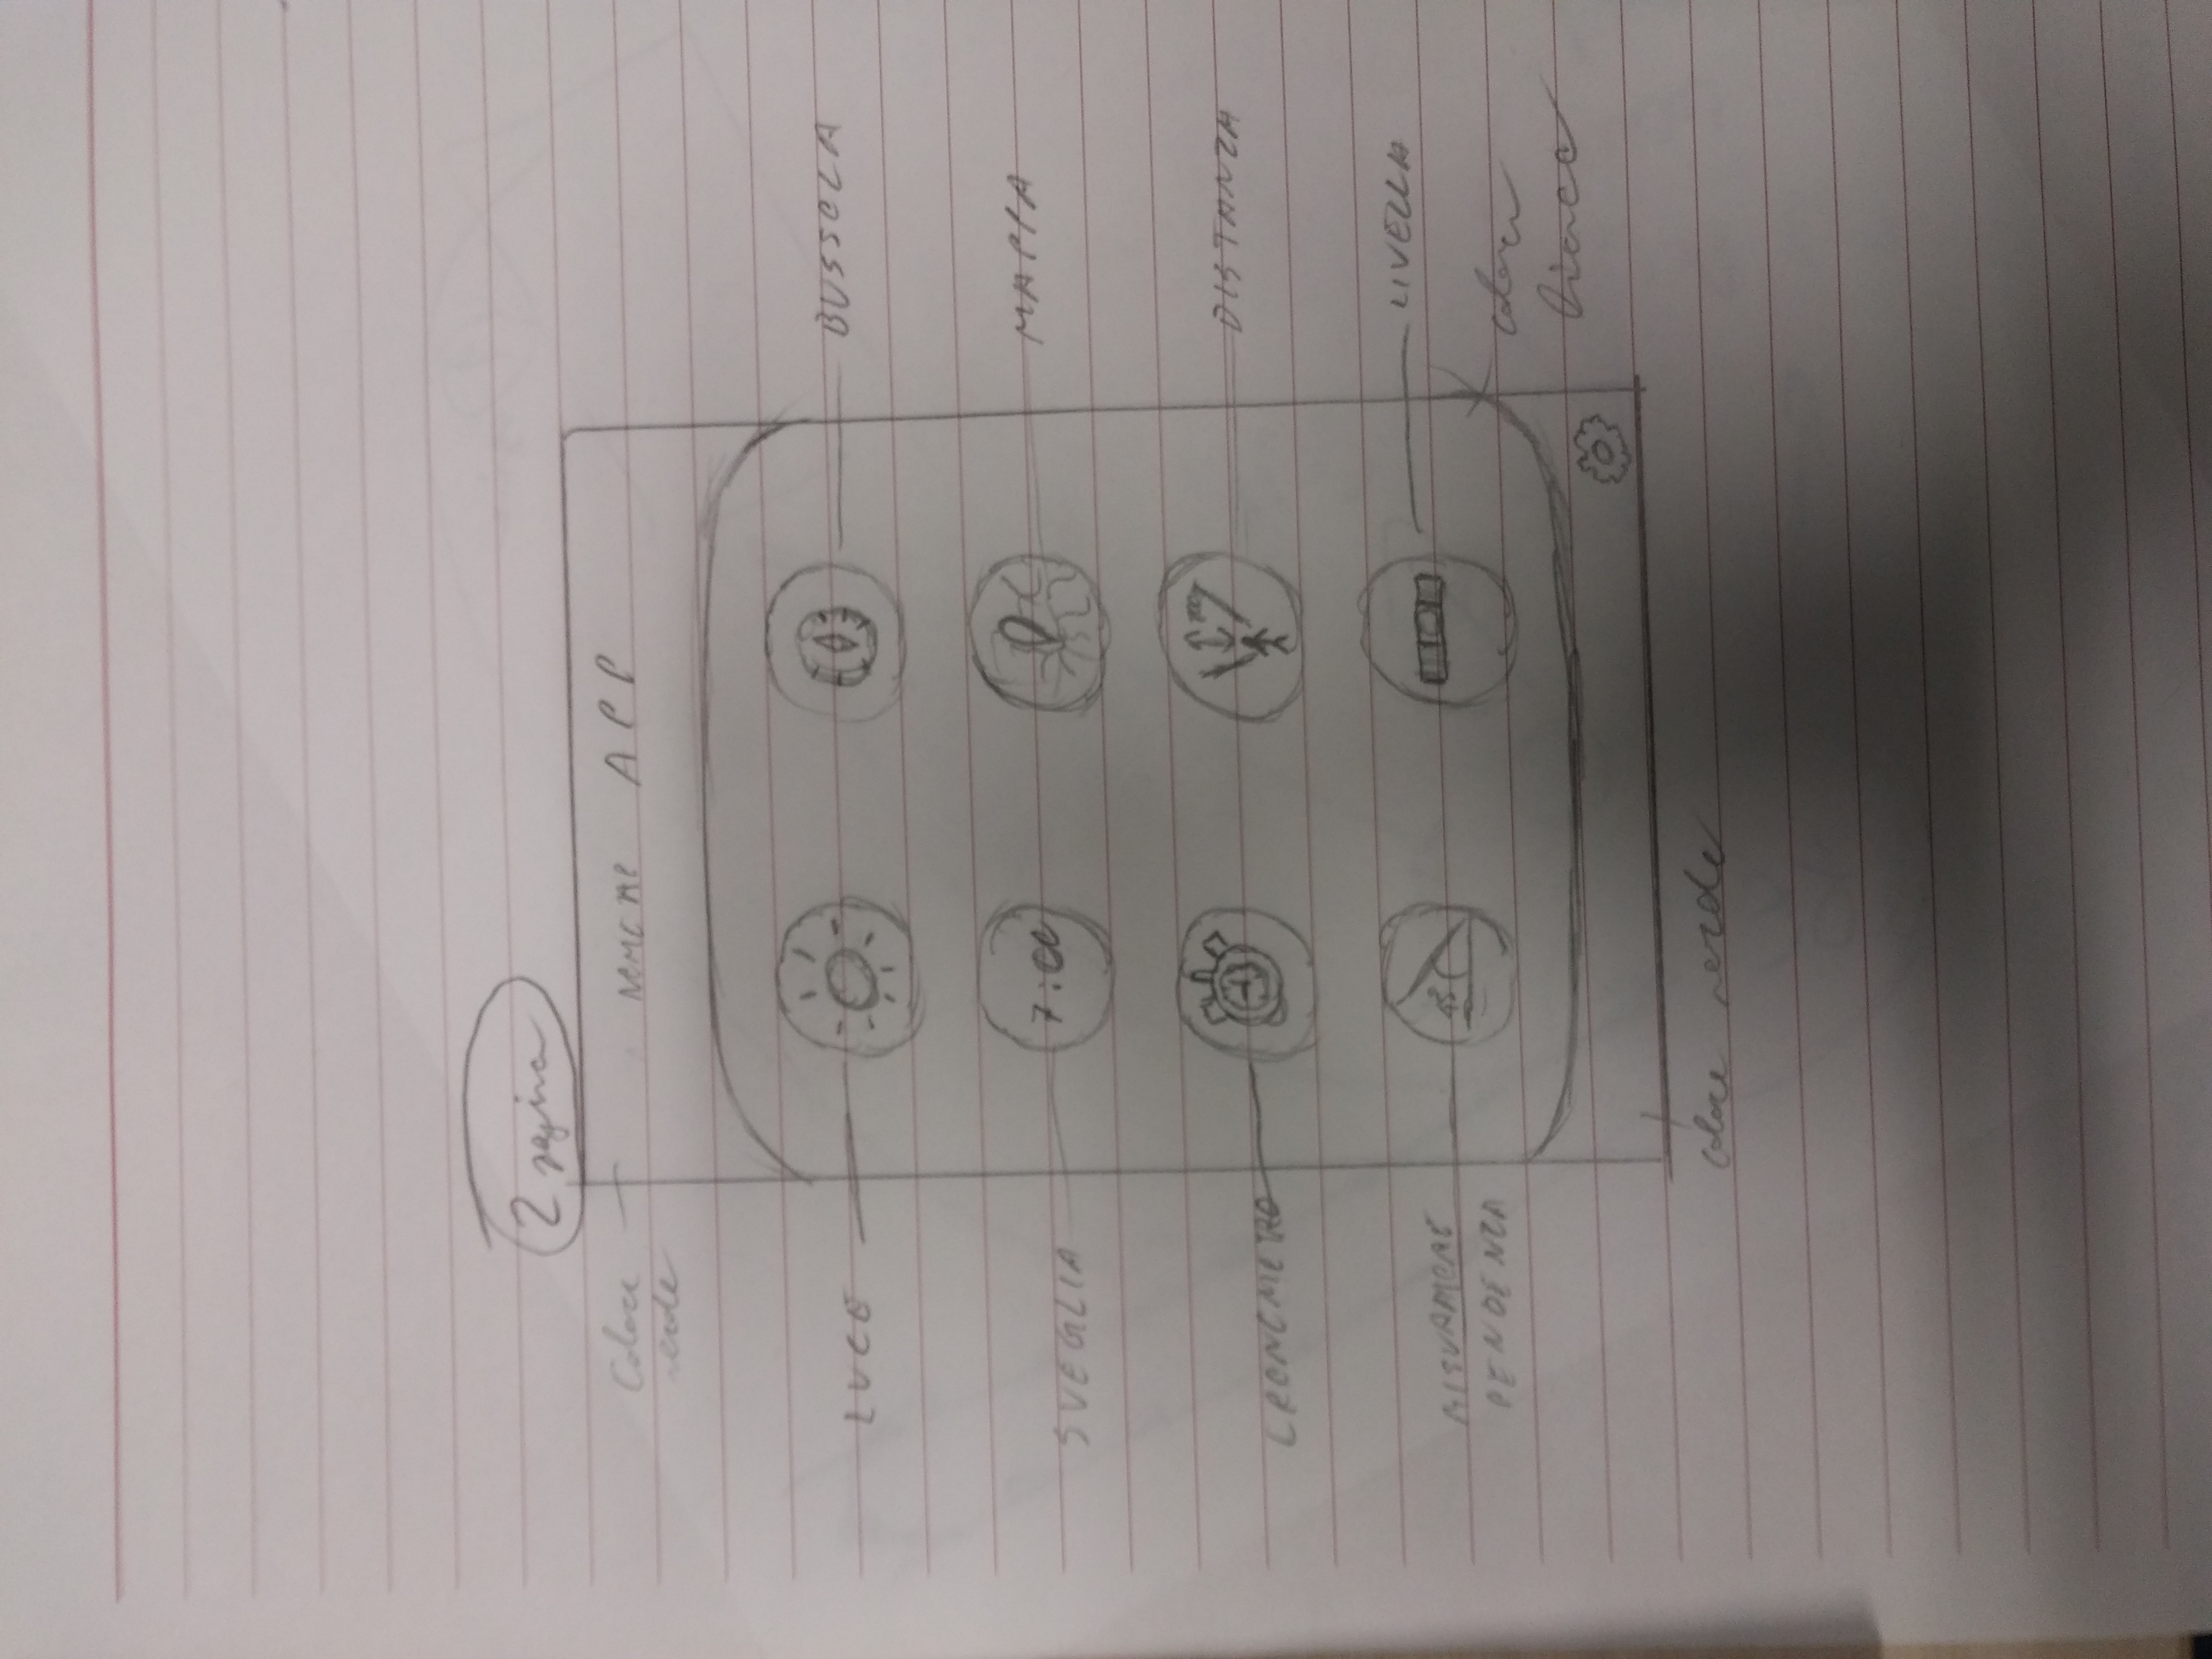 2 pagina
Colore
verde
NOME AP APP
LUCE
BUSSOLA
SVEGLIA
7:00
MAPPA
CRONOMETRO
DISTANZA
MISURAMENE
PENDENZA
45°
LIVELLA
colore
bianco
colore verde